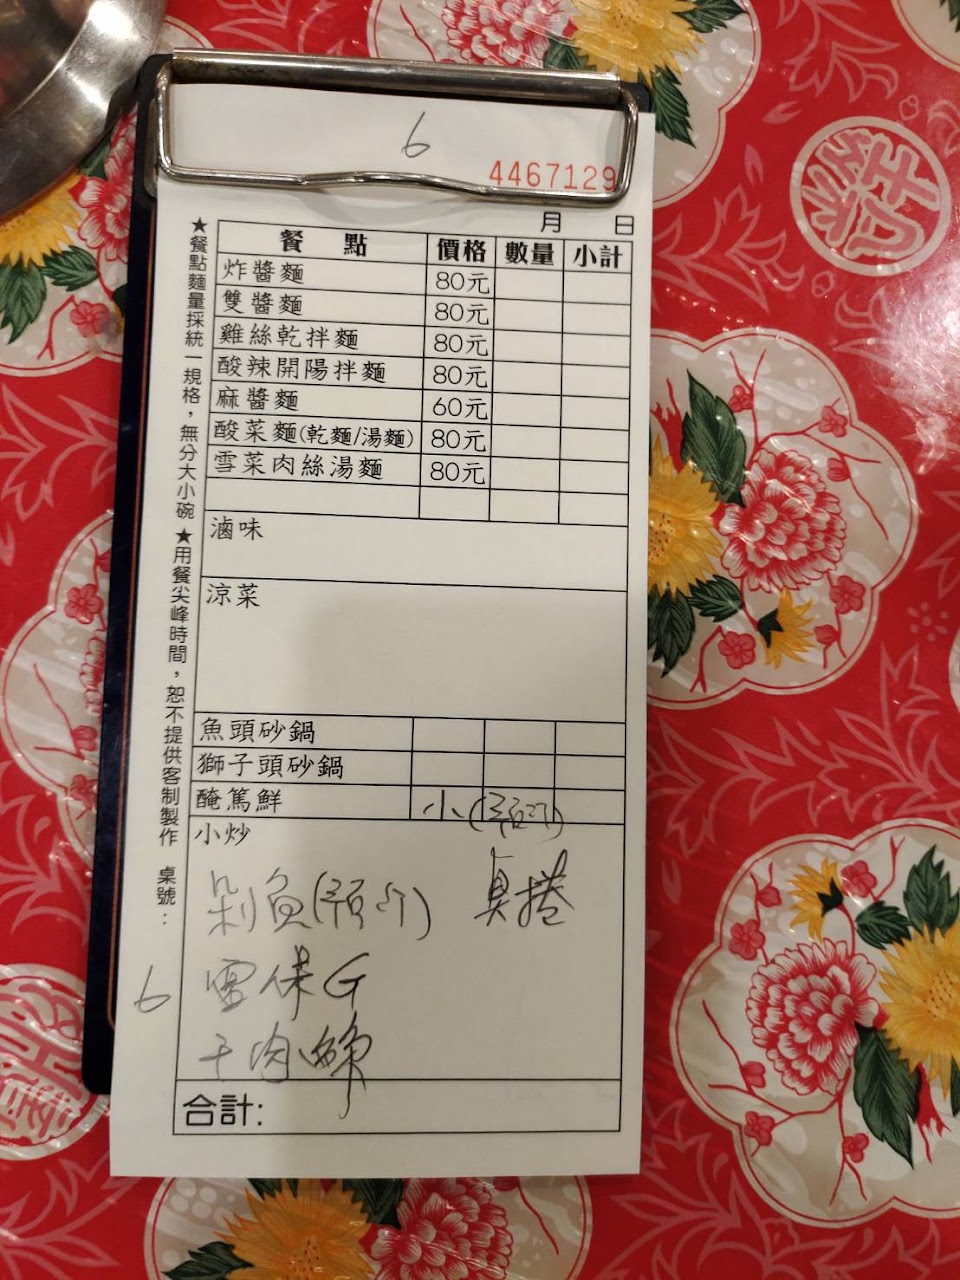 6
4467129
月 日
餐點 價格 數量 小計
炸醬麵 80元
雙醬麵 80元
雞絲乾拌麵 80元
酸辣開陽拌麵 80元
麻醬麵 60元
酸菜麵(乾麵/湯麵) 80元
雪菜肉絲湯麵 80元
滷味
涼菜
魚頭砂鍋
獅子頭砂鍋
醃篤鮮 小(預訂)
小炒
剁魚(預订) 臭捲
雪
干肉絲
合計:
★餐點麵量採統一規格，無分大小碗 ★用餐尖峰時間，恕不提供客制製作 桌號：
6